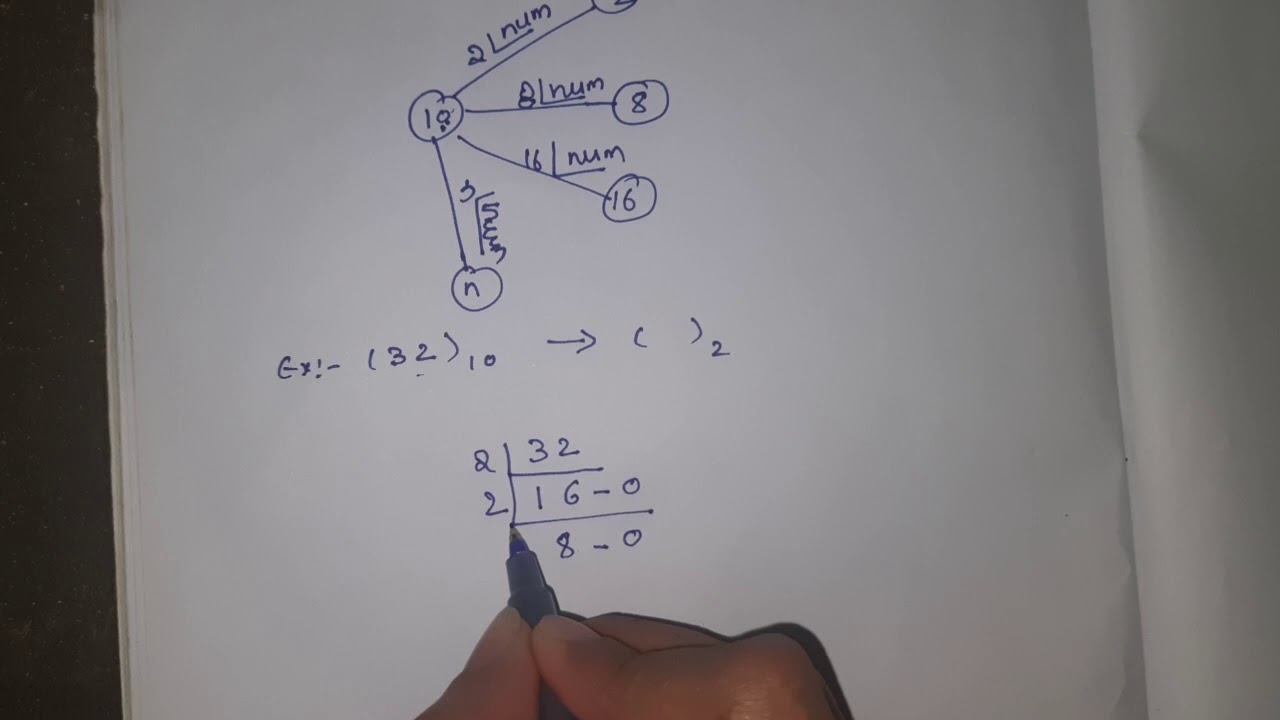 2
2 num
10
8 num
8
16 num
16
n num
n
Ex:- (32)10 → ( )2
2 32
2 16 - 0
8 - 0